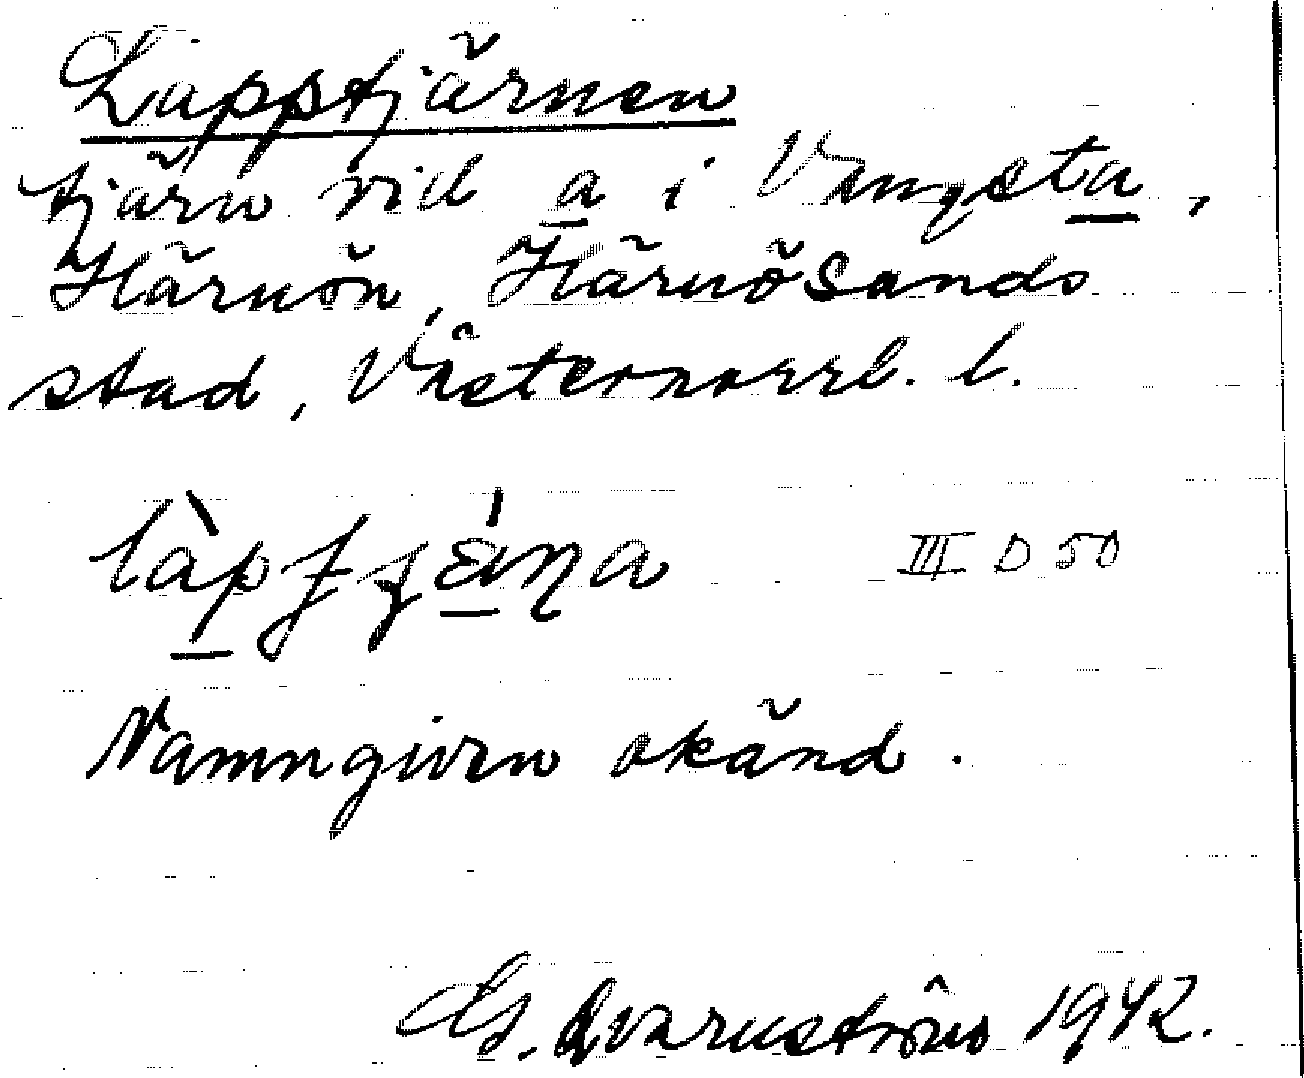 Lapptjärnen
tjärn vid a i Vangsta,
Härnön, Härnösands
stad, Västernorrl. l.
III D 50
Namngivn okänd.
G. Qvarnström 1942.